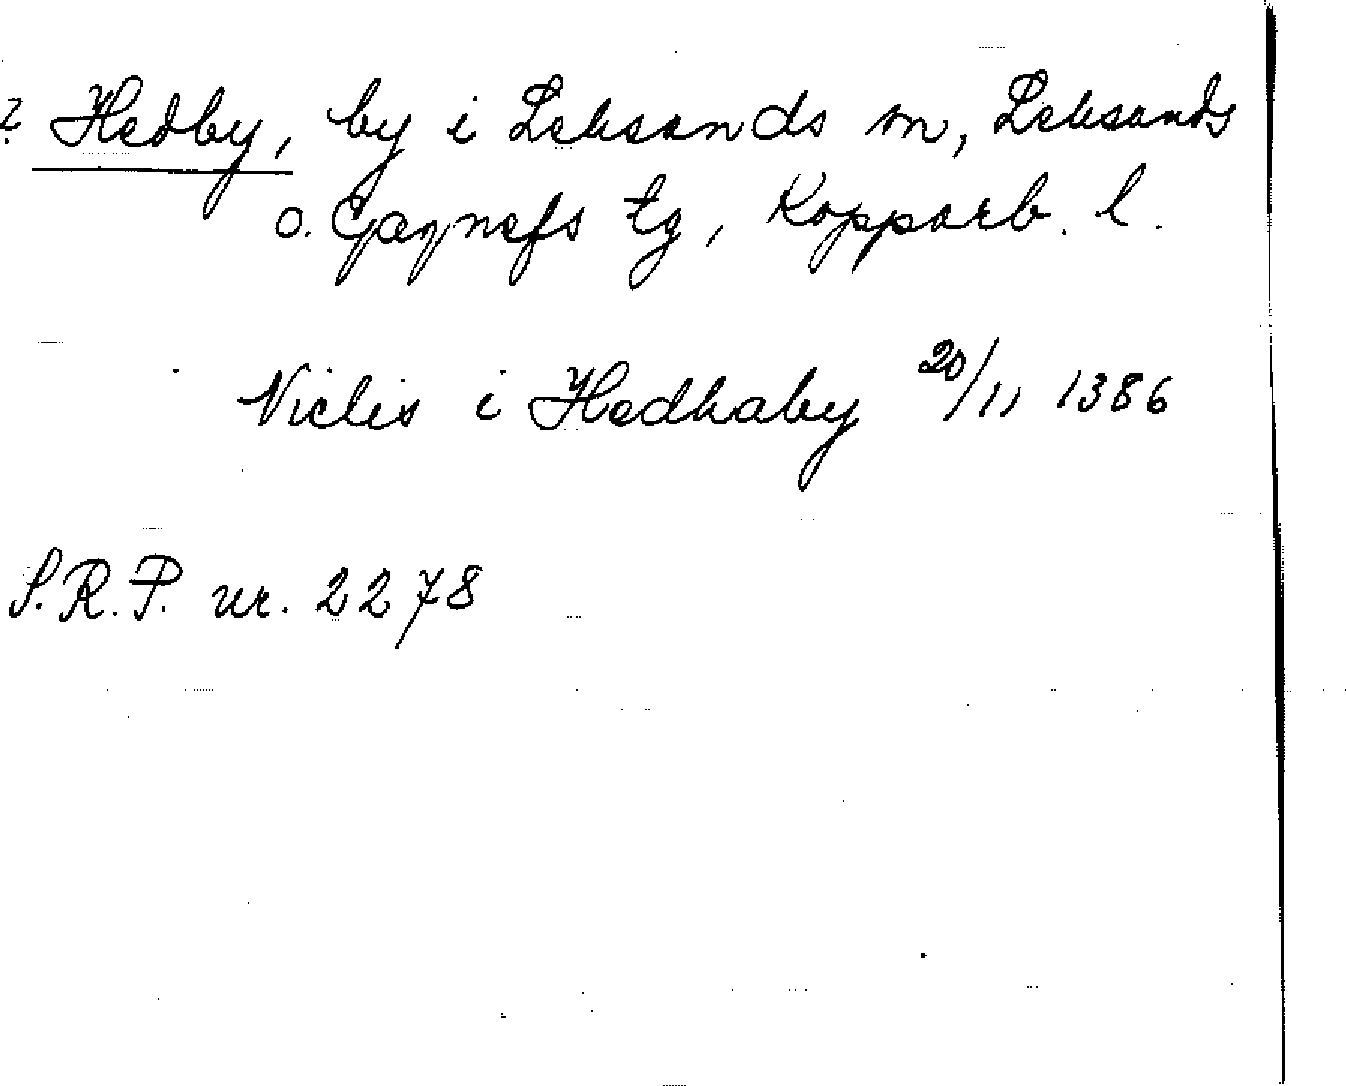 ? Hedby, by i Leksands sn, Leksands
o. Gagnefs tg, Kopparb. l.
Niclis i Hedhaby 20/11 1386
S.R.P. nr. 2278